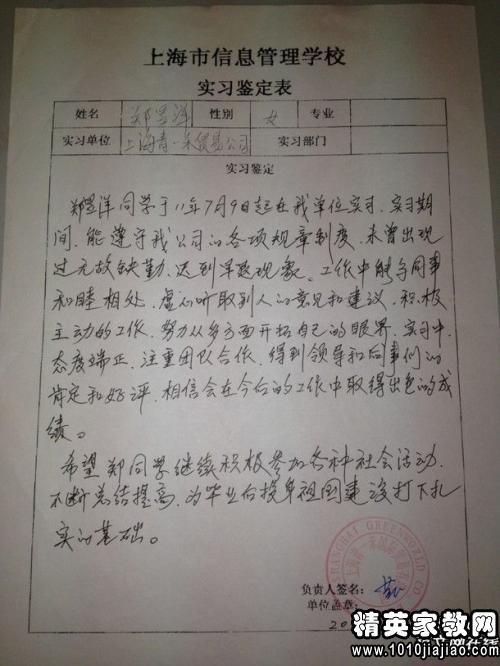 上海市信息管理学校
实习鉴定表
姓名 郑昱洋 性别 女 专业
实习单位 上海青一禾贸易公司 实习部门
实习鉴定
郑昱洋同学于11年7月9日起在我单位实习，实习期
间，能遵守我公司的各项规章制度，未曾出现
过无故缺勤，迟到早退现象。工作中能与同事
和睦相处，虚心听取别人的意见和建议，积极
主动的工作，努力从多方面开拓自己的眼界，实习中，
态度端正，注重团队合作，得到领导和同事们的
肯定和好评，相信会在今后的工作中取得出色的成
绩。
希望郑同学继续积极参加各种社会活动，
不断总结提高，为毕业后投身祖国建设打下扎
实的基础。
SHANGHAI GREENWORLD CO
负责人签名：
单位盖章：
20
精英家教网
www.1010jiajiao.com